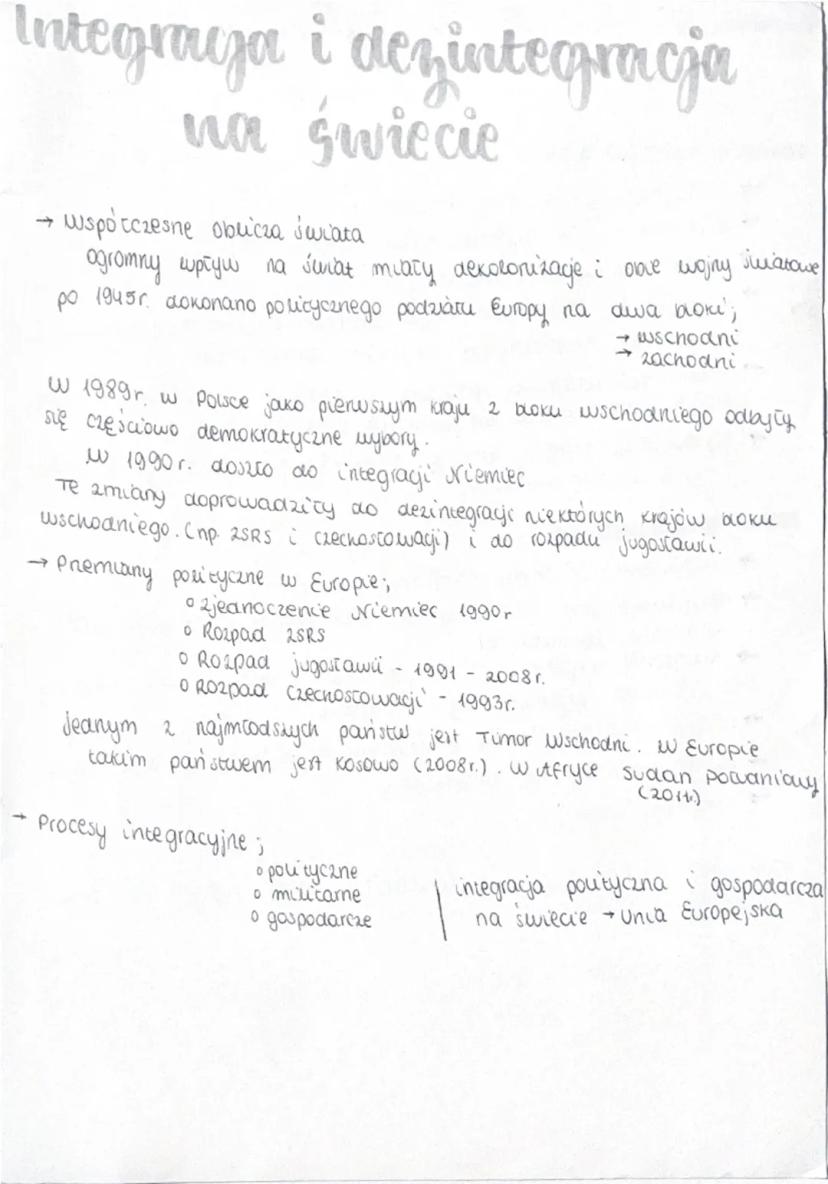 Integracja i dezintegracja
na świecie
→ Współczesne oblicza świata
ogromny wpływ na świat miały dekolonizacje i obie wojny światowe
po 1945r. dokonano politycznego podziału Europy na dwa bloki;
→ wschodni
→ zachodni
W 1989r. w Polsce jako pierwszym kraju z bloku wschodniego odbyły
się częściowo demokratyczne wybory.
W 1990r. doszło do integracji Niemiec
Te zmiany doprowadziły do dezintegracji niektórych krajów bloku
wschodniego. (np. ZSRS i Czechosłowacji) i do rozpadu jugosławii.
→ Przemiany polityczne w Europie;
o zjednoczenie Niemiec 1990r
o Rozpad ZSRS
o Rozpad jugosławii - 1991 - 2008r.
o Rozpad Czechosłowacji - 1993r.
jednym z najmłodszych państw jest Timor Wschodni. W Europie
takim państwem jest Kosowo (2008r.). W Afryce Sudan Południowy
(2011.)
→ Procesy integracyjne;
o polityczne
o militarne
o gospodarcze
integracja polityczna i gospodarcza
na świecie → Unia Europejska